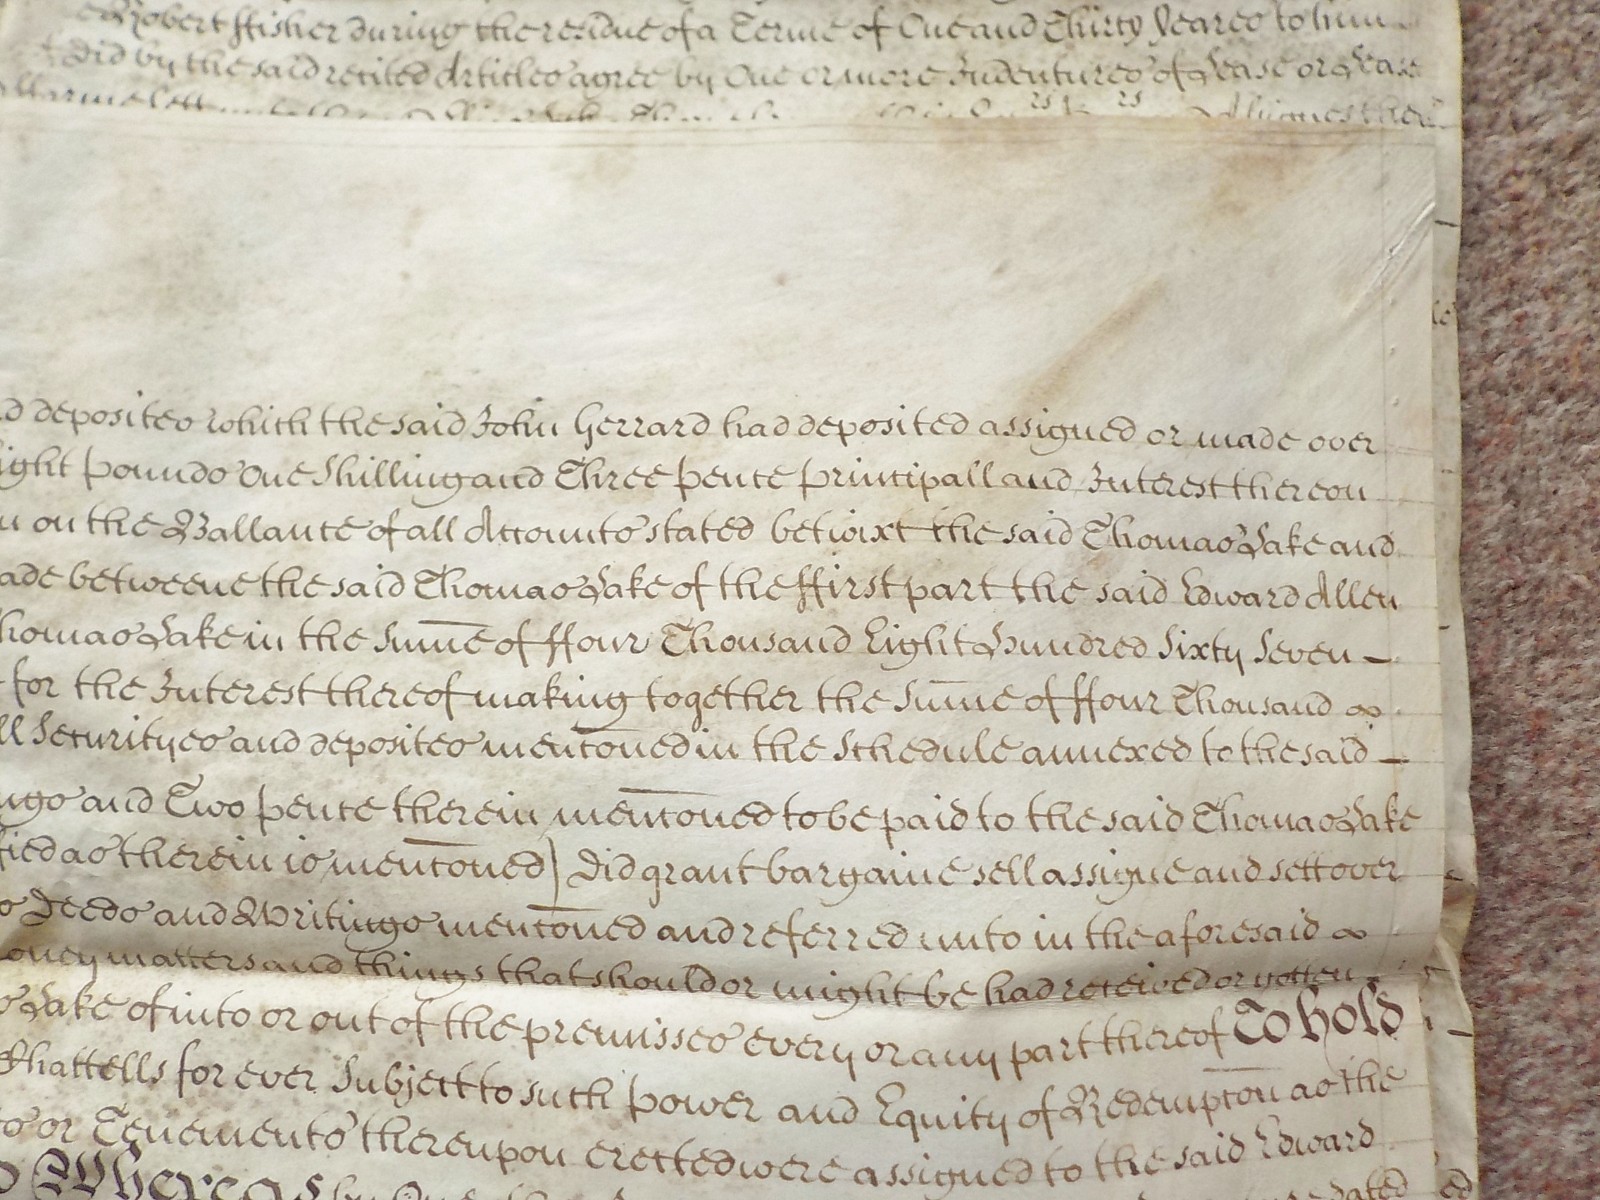 Robert ffisher during the residue of a Terme of One and Thirty Yeares to him
did by the said recited Articles agree by One or more Indentures of Lease or Lease
deposites which the said John Gerrard had deposited assigned or made over
ight pounds One Shilling and Three pence principall and Interest thereon
on the Ballance of all Accounts stated betwixt the said Thomas Lake and
ade betweene the said Thomas Lake of the ffirst part the said Edward Allen
homas Lake in the Sume of ffour Thousand Eight Hundred Sixty Seven
for the Interest thereof making together the Sume of ffour Thousand
ll Securityes and deposites mencōned in the Schedule annexed to the said
ngs and Two pence therein mencōned to be paid to the said Thomas Lake
fied as therein is mencōned) did grant bargaine sell assigne and sett over
s Deeds and Writings mencōned and referred unto in the aforesaid
oney matters and things that should or might be had received or gotten
s Lake of into or out of the premisses every or any part thereof To hold
Chattells for ever Subject to such power and Equity of Redempcōn as the
ts or Tenements thereupon erected were assigned to the said Edward
Whereas by